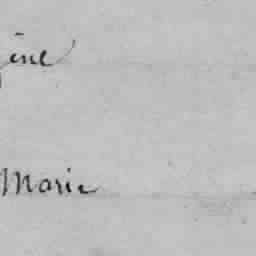 gine
Marie